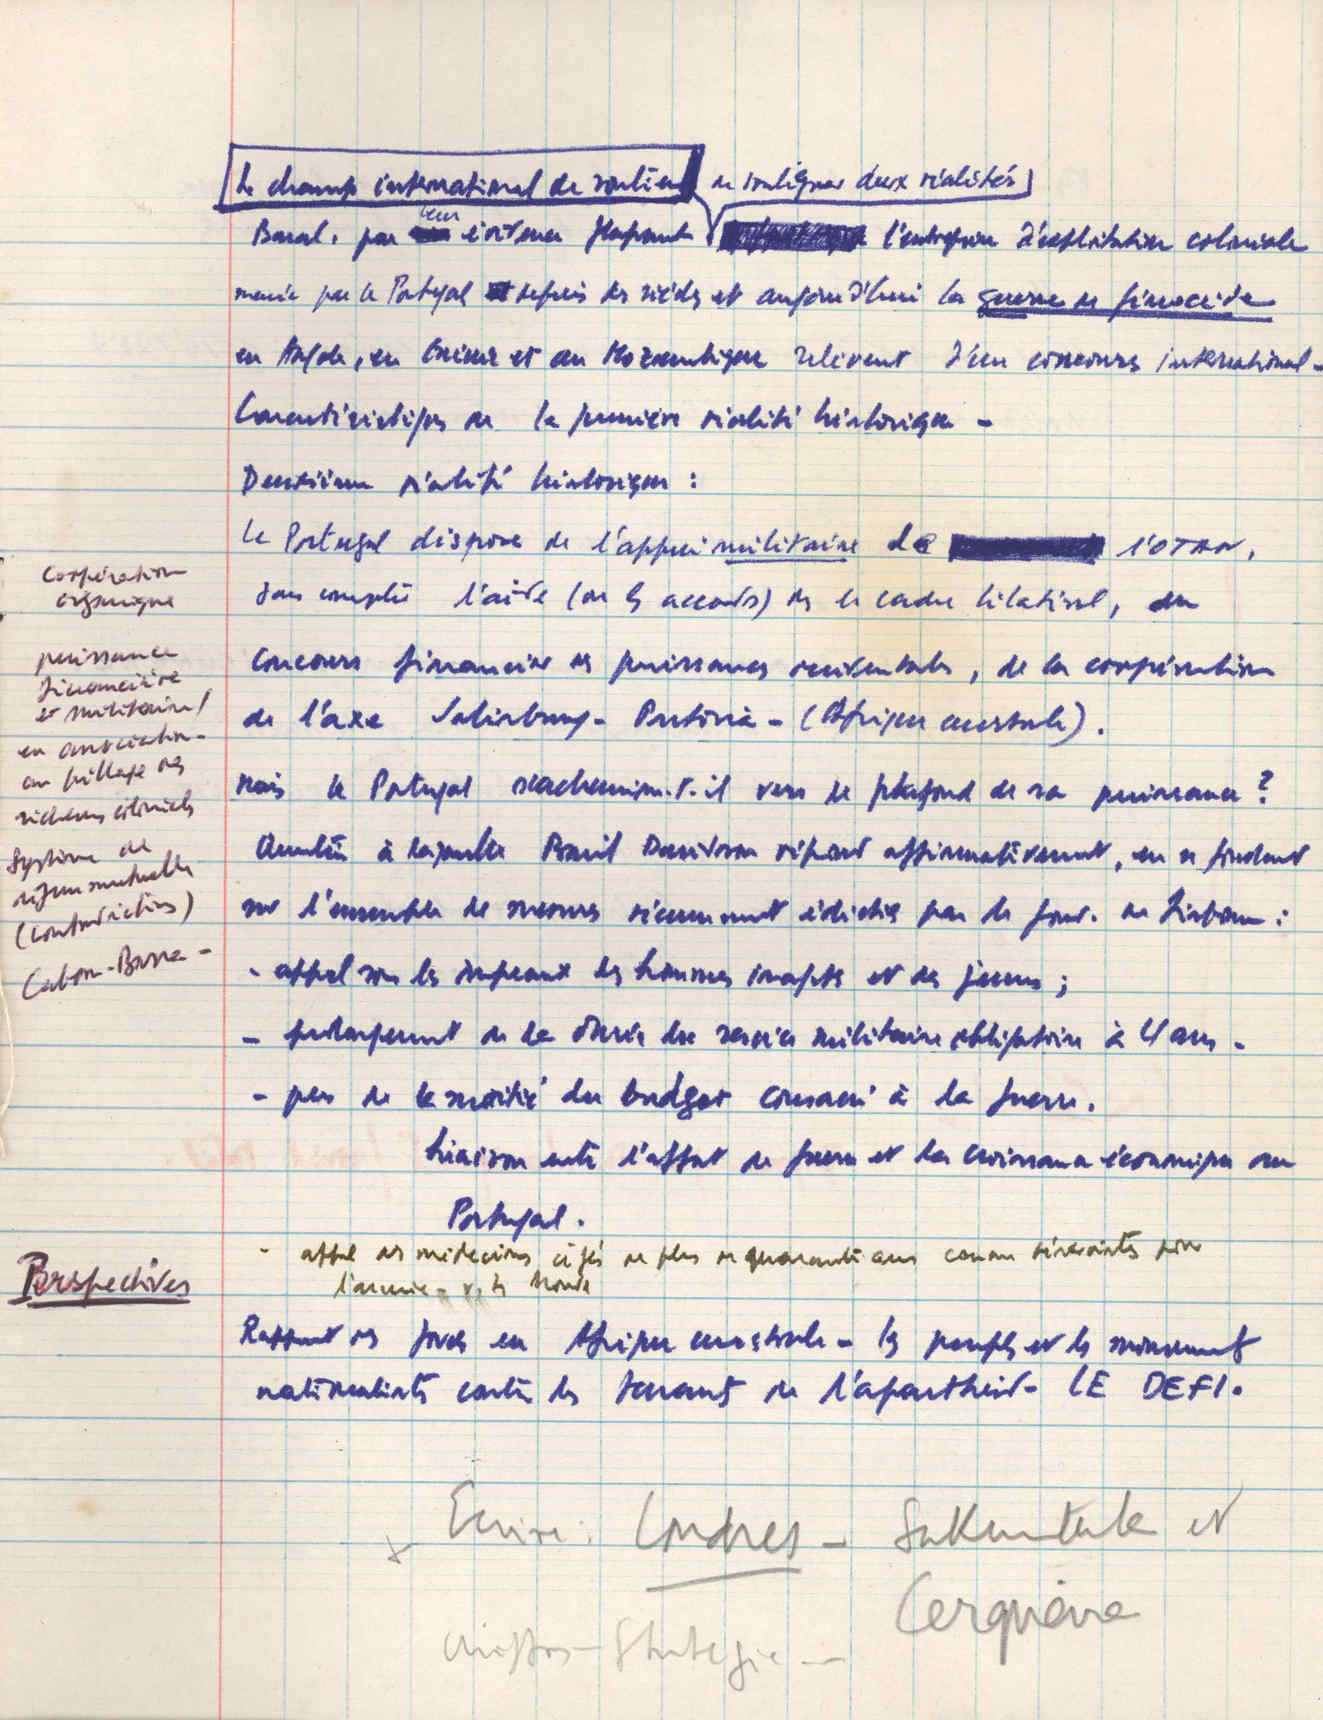 Le champ international de soutien de souligner deux réalités
Banal, par leur évidence frappante l'entreprise d'exploitation coloniale
menée par le Portugal depuis des siècles et aujourd'hui la guerre de génocide
en Angola, en Guinée et au Mozambique relèvent d'un concours international -
Caractéristiques de la première réalité historique -
Deuxième réalité historique :
Le Portugal dispose de l'appui militaire de l'OTAN,
sans compter l'aide (ou les accords) ds le cadre bilatéral, du
concours financier des puissances occidentales, de la coopération
de l'axe Salisbury - Pretoria - (Afrique australe).
Mais le Portugal s'achemine-t-il vers le plafond de sa puissance ?
Question à laquelle Basil Davidson répond affirmativement, en se fondant
sur l'ensemble de mesures récemment édictées par le gouv. de Lisbonne :
- appel sous les drapeaux des hommes inaptes et des jeunes ;
- prolongement de la durée du service militaire obligatoire à 4 ans -
- plus de la moitié du budget consacré à la guerre.
Liaison entre l'effort de guerre et la croissance économique au
Portugal.
- appel des médecins âgés de plus de quarante ans comme réservistes pour
l'armée - v. le Monde
Rapport des forces en Afrique australe - les peuples et les mouvements
nationalistes contre les tenants de l'apartheid - LE DEFI.
coopération
organique
puissance
financière
et militaire
en association
au pillage des
richesses coloniales
Système de
défense mutuelle
(contradictions)
Cabora-Bassa -
Perspectives
x Ecrire : Londres - Sakuntala et
Cerqueira
chiffres - Stratégie -